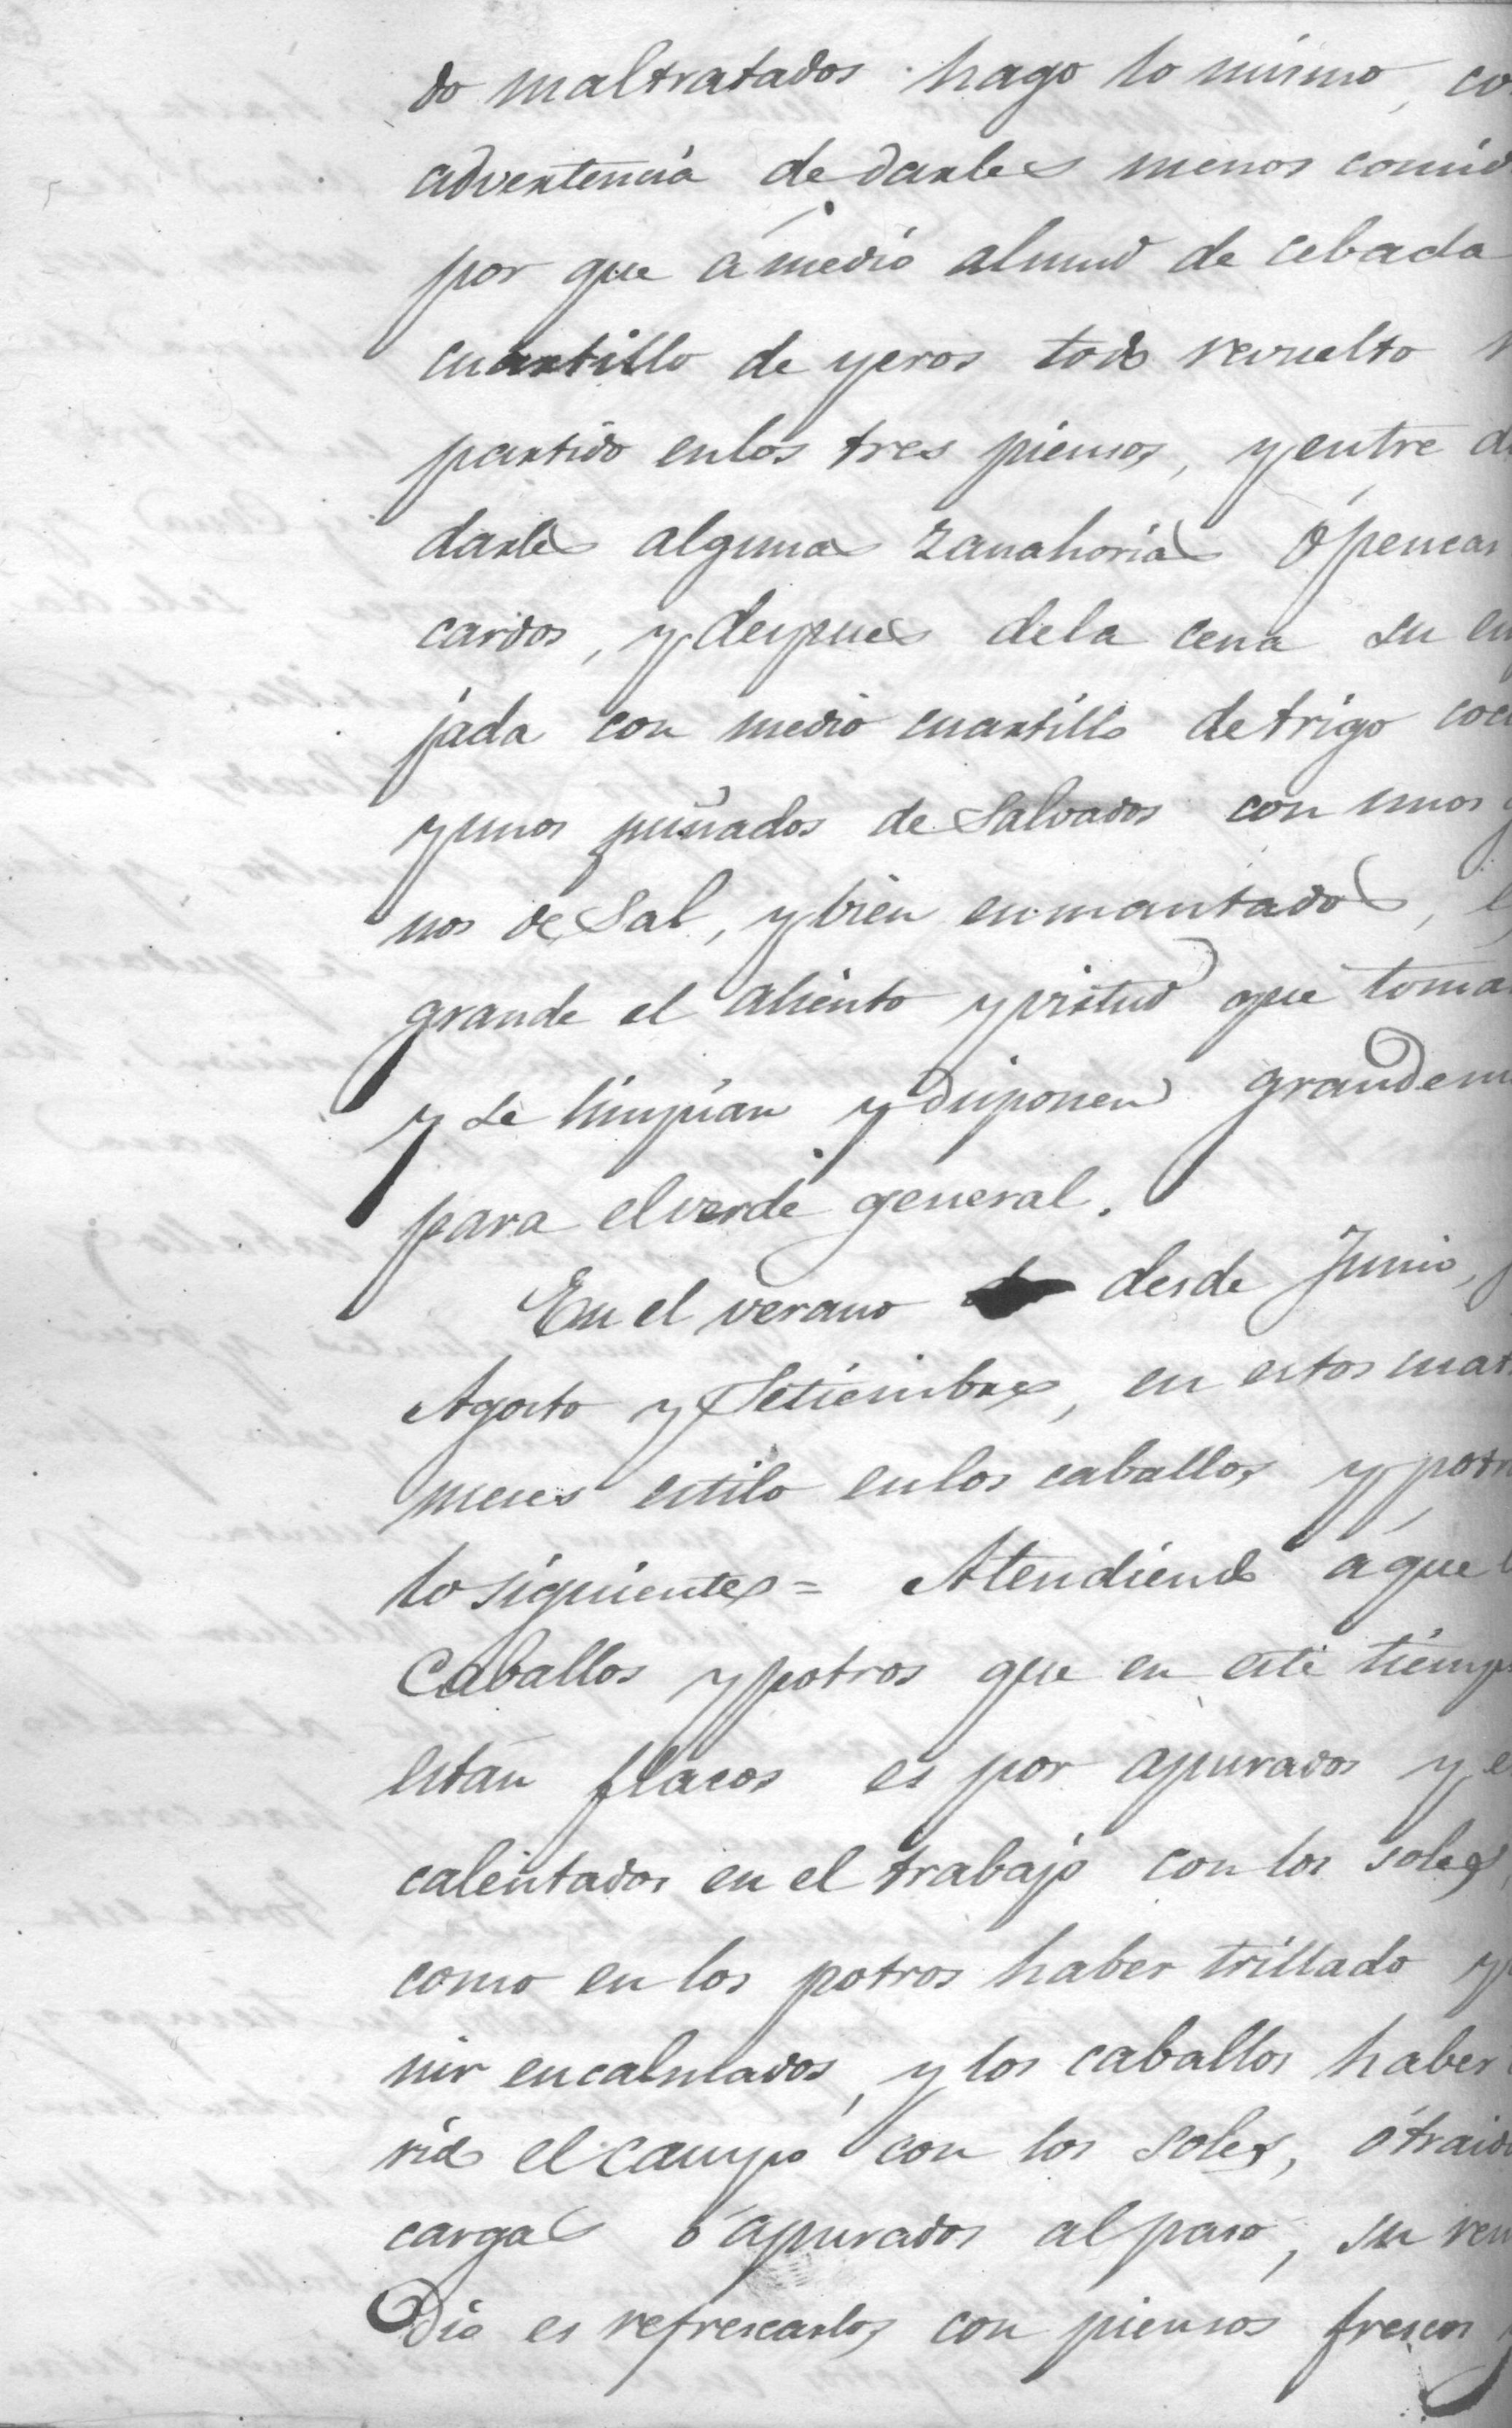 do maltratados hago lo mismo, co
advertencia de darles menos comid
por que á medio almud de cebada
cuartillo de yeros todo revuelto
partido enlos tres piensos, y entre d
darles algunas zanahorias ó pencas
cardos, y despues dela cena su en
jada con medio cuartillo de trigo coci
y unos puñados de Salvados con unos g
nos de Sal, y bien enmantados, e
grande el aliento y virtud que toma
y se limpian y disponen grandem
para el verde general.
En el verano desde Junio, J
Agosto y Setiembre, en estos cuat
meses estilo enlos caballos, y potr
lo siguiente = Atendiendo áquel
Caballos y potros que en este tiemp
están flacos es por apurados y e
calentados en el trabajo con los soles,
como en los potros haber trillado y
nir encalmados, y los caballos haber
rido el campo con los soles, ó traido
cargas ó apurados al paso, su reme
Dio es refrescarlos, con piensos frescos